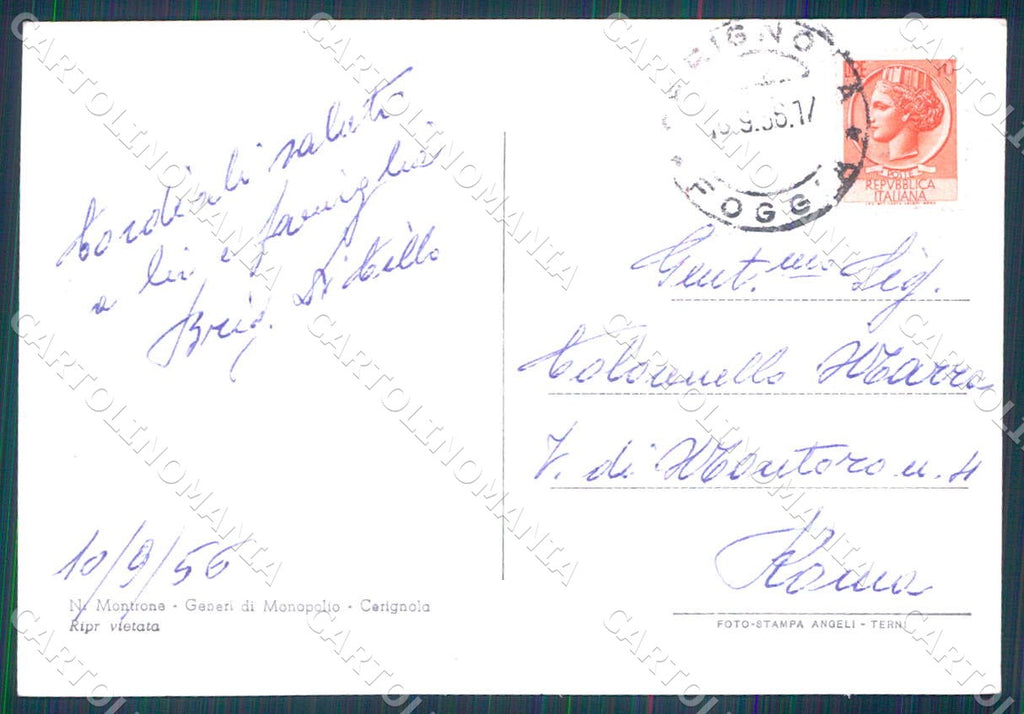 Cordiali saluti
a lei e famiglia
Brig. Di Lello
10/9/56
N. Montrone - Generi di Monopolio - Cerignola
Ripr vietata
FOGGIA
9.56.17
LIRE 10
POSTE
REPVBBLICA
ITALIANA
Gent.mo Sig.
Colonnello Marra
V. di Montoro n. 4
Roma
FOTO-STAMPA ANGELI - TERNI
CARTOLINOMANIA